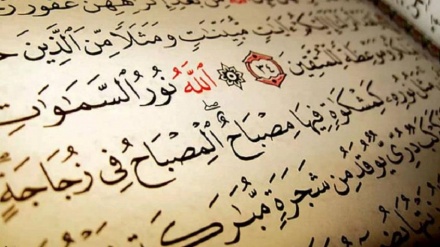 كْرَٰهِهِنَّ غَفُورٌ
ءَايَٰتٍ مُّبَيِّنَٰتٍ وَمَثَلًا مِّنَ ٱلَّذِينَ
لِّلْمُتَّقِينَ ٣٤ ٱللَّهُ نُورُ ٱلسَّمَٰوَٰتِ
نُورِهِۦ كَمِشْكَوٰةٍ فِيهَا مِصْبَاحٌ ٱلْمِصْبَاحُ فِى زُجَاجَةٍ
دُرِّىٌّ يُوقَدُ مِن شَجَرَةٍ مُّبَٰرَكَةٍ